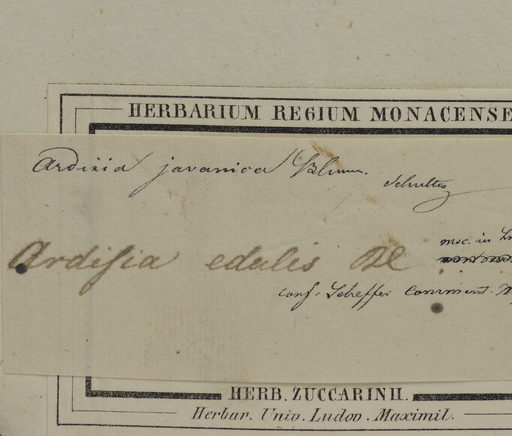 HERBARIUM REGIUM MONACENSE
Ardisia javanica Blum.
Schultes
msc. in
Ardisia edulis Bl.
conf. Scheffer Comment.
HERB. ZUCCARINII.
Herbar. Univ. Ludov. Maximil.